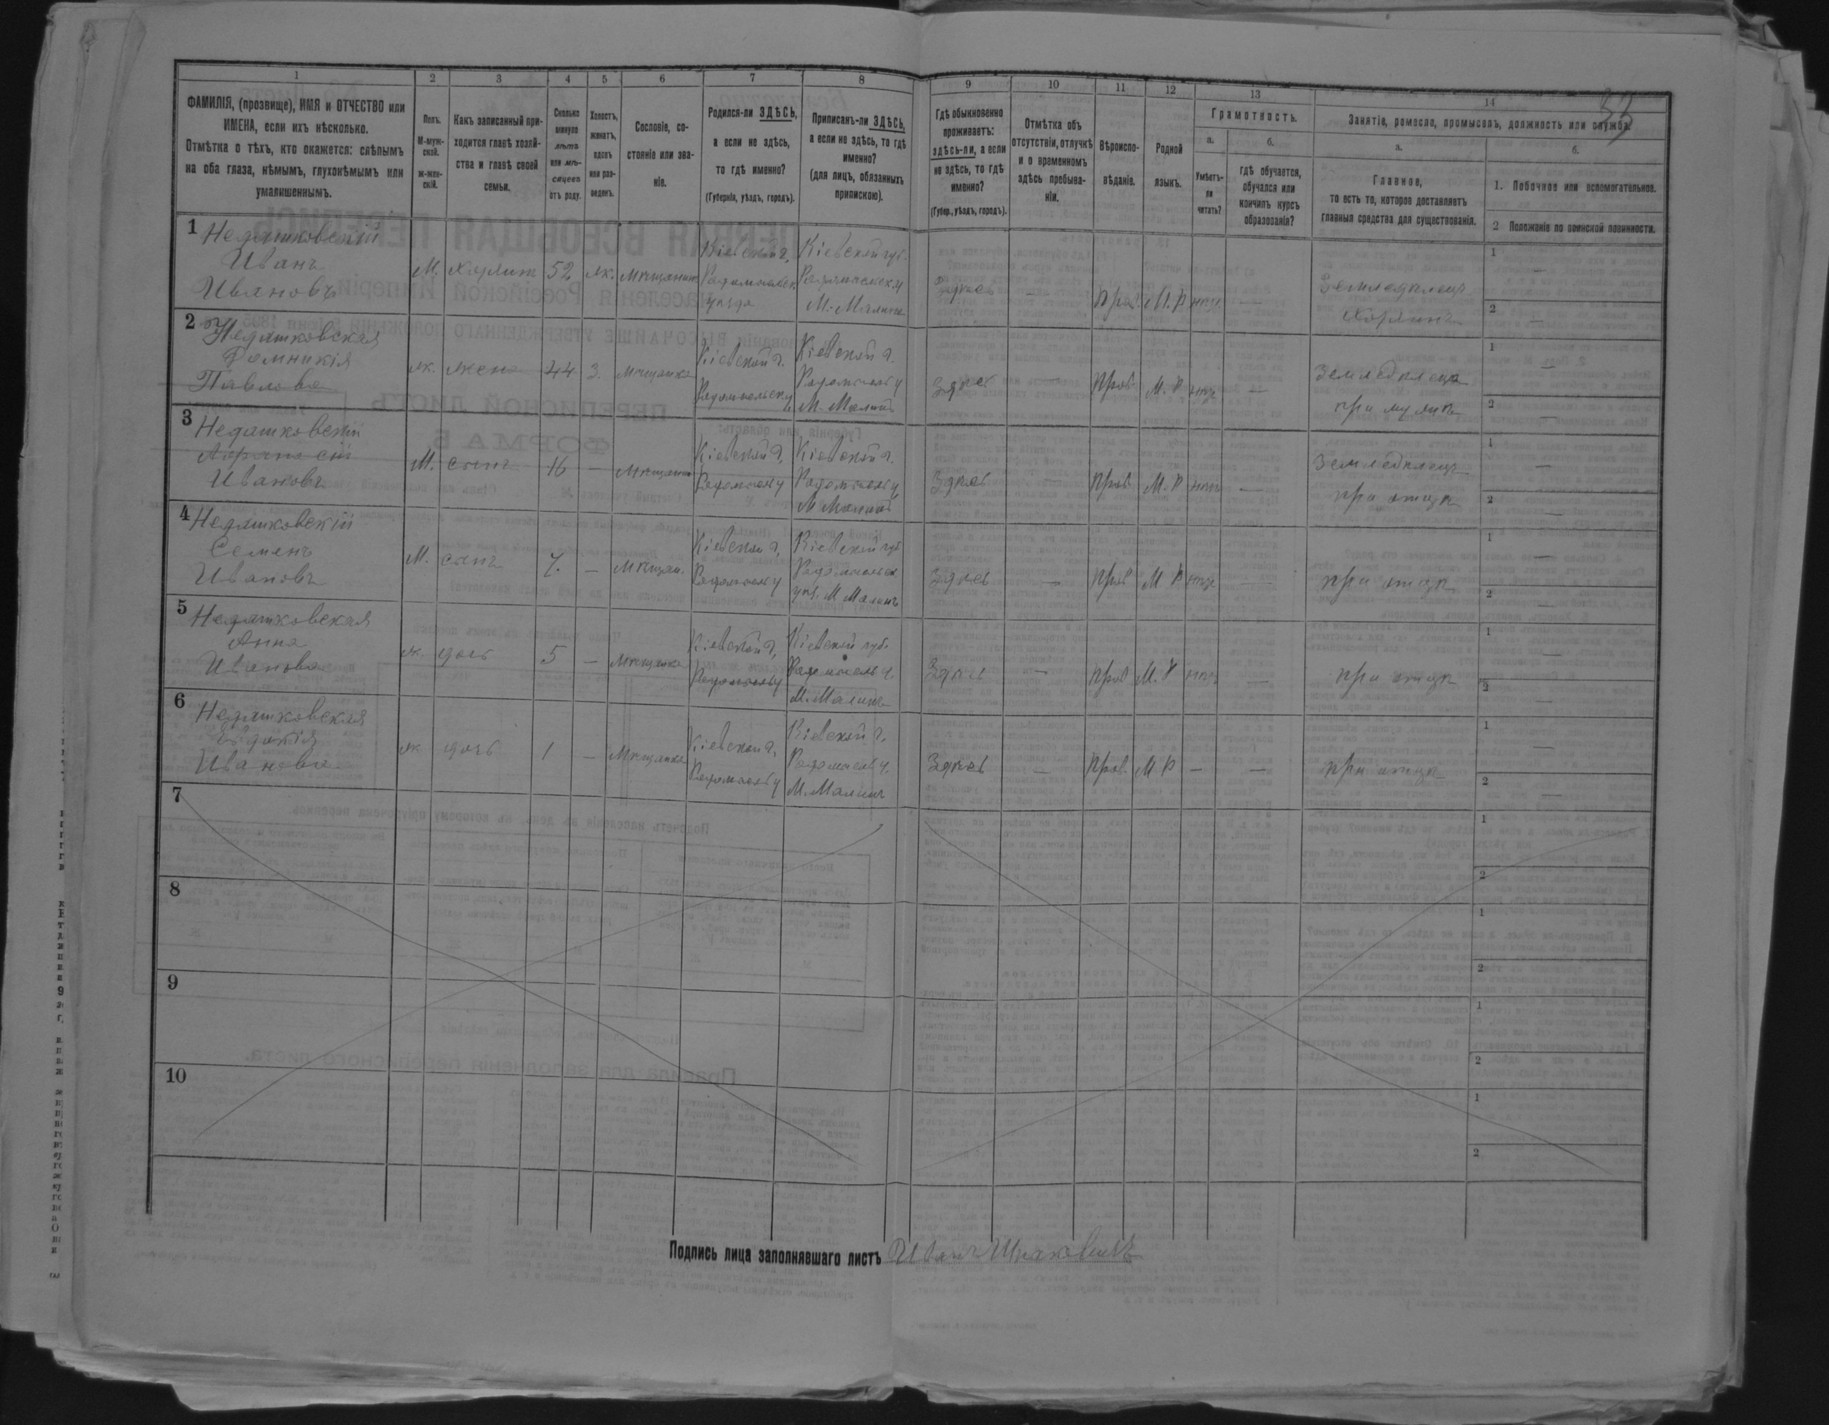 1
2
3
4
5
6
7
8
9
10
11
12
13
14
33
ФАМИЛІЯ, (прозвище), ИМЯ и ОТЧЕСТВО или
ИМЕНА, если ихъ нѣсколько.
Отмѣтка о тѣхъ, кто окажется: слѣпымъ
на оба глаза, нѣмымъ, глухонѣмымъ или
умалишеннымъ.
Полъ.
М-муж-
ской.
Ж-жен-
скій.
Какъ записанный при-
ходится главѣ хозяй-
ства и главѣ своей
семьи.
Сколько
минуло
лѣтъ
или мѣ-
сяцевъ
отъ роду.
Холостъ,
женатъ,
вдовъ
или раз-
веденъ.
Сословіе, со-
стояніе или зва-
ніе.
Родился-ли ЗДѢСЬ,
а если не здѣсь,
то гдѣ именно?
(Губернія, уѣздъ, городъ).
Приписанъ-ли ЗДѢСЬ,
а если не здѣсь, то гдѣ
именно?
(для лицъ, обязанныхъ
припискою).
Гдѣ обыкновенно
проживаетъ:
здѣсь-ли, а если
не здѣсь, то гдѣ
именно?
(Губер., уѣздъ, городъ).
Отмѣтка объ
отсутствіи, отлучкѣ
и о временномъ
здѣсь пребыва-
ніи.
Вѣроиспо-
вѣданіе.
Родной
языкъ.
Грамотность.
а.
б.
Умѣетъ-
ли
читать?
Гдѣ обучается,
обучался или
кончилъ курсъ
образованія?
Занятіе, ремесло, промыселъ, должность или служба.
а.
б.
Главное,
то есть то, которое доставляетъ
главныя средства для существованія.
1. Побочное или вспомогательное.
2. Положеніе по воинской повинности.
1
Недашковскій
Иванъ
Ивановъ
М.
хозяинъ
52
ж.
мѣщанинъ
Кіевской г.
Радомысльск
уѣзда
Кіевской губ.
Радомысльск у
М. Малинъ
Здѣсь
—
Прав
М. Р
нѣтъ
—
Земледѣлецъ
хозяинъ
1
—
2
—
2
Недашковская
Домникія
Павлова
ж.
жена
44
З.
мѣщанка
Кіевской г.
Радомысльск у
Кіевской г.
Радомысльск у
М. Малинъ
Здѣсь
Прав
М. Р
нѣтъ
—
Земледѣлецъ
при мужѣ
1
—
2
—
3
Недашковскій
Афанасій
Ивановъ
М.
сынъ
16
—
мѣщанинъ
Кіевской г.
Радомысльск у
Кіевской г.
Радомысльск у
М Малинъ
Здѣсь
Прав
М. Р
нѣтъ
—
Земледѣлецъ
при отцѣ
1
—
2
—
4
Недашковскій
Семенъ
Ивановъ
М.
сынъ
7.
—
мѣщан.
Кіевской г.
Радомысльск у
Кіевской губ
Радомысльск
уѣз. М Малинъ
Здѣсь
—
Прав
М Р
нѣтъ
—
при отцѣ
1
—
2
—
5
Недашковская
Анна
Иванова
ж.
дочь
5
—
мѣщанка
Кіевской г.
Радомысльск у
Кіевской губ.
Радомысльск у.
М. Малинъ
Здѣсь
—
Прав
М. Р
нѣтъ
—
при отцѣ
1
—
2
—
6
Недашковская
Евдокія
Иванова
ж
дочь
1
—
мѣщанка
Кіевской г.
Радомысльск у
Кіевской г.
Радомысльск у.
М. Малинъ
Здѣсь
—
Прав.
М. Р
—
—
при отцѣ
1
—
2
—
7
1
2
8
1
2
9
1
2
10
1
2
Подпись лица заполнявшаго листъ Иванъ